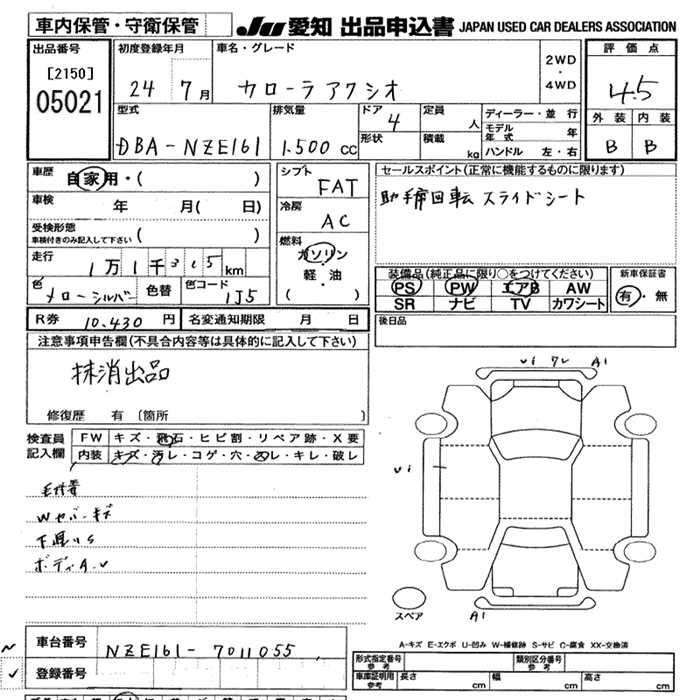 車内保管・守衛保管
JU 愛知 出品申込書 JAPAN USED CAR DEALERS ASSOCIATION
出品番号
[2150]
05021
初度登録年月
24 7月
車名・グレード
カローラアクシオ
2WD
・
4WD
評価点
4.5
外装 内装
B B
型式
DBA-NZE161
排気量
1.500 cc
ドア
4
形状
定員
人
積載
kg
ディーラー・並行
モデル年式 年
ハンドル 左・右
車歴
自家用・( )
車検
年 月( 日)
受検形態
車検付きのみ記入して下さい ( )
走行
1万1千315km
色
メローシルバー
色替
色コード
1J5
シフト
FAT
冷房
AC
燃料
ガソリン
・
軽・油
( )
セールスポイント(正常に機能するものに限ります)
助手席回転 スライドシート
装備品(純正品に限り○をつけてください)
PS PW エアB AW
SR ナビ TV カワシート
新車保証書
有・無
R券 10.430 円
名変通知期限 月 日
後日品
注意事項申告欄(不具合内容等は具体的に記入して下さい)
抹消出品
修復歴 有 (箇所 )
検査員
記入欄
FW キズ・飛石・ヒビ割・リペア跡・X要
内装 キズ・汚レ・コゲ・穴・スレ・キレ・破レ
Wカバーキズ
下廻りS
ボディA.U
A1
A1
スペア
A-キズ E-エクボ U-凹み W-補修跡 S-サビ C-腐食 XX-交換済
車台番号
NZE161-7011055
登録番号
形式指定番号
参考
類別区分番号
参考
車庫証明用
参考
長さ cm 幅 cm 高さ cm